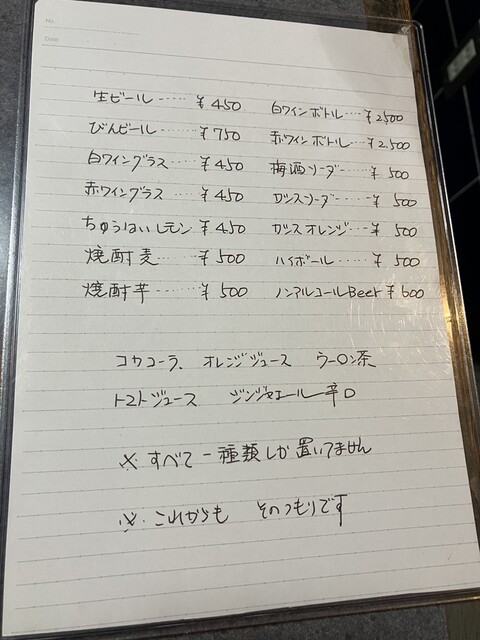 No.
Date
生ビール ‥‥‥ ¥450
びんビール ‥‥‥ ¥750
白ワイングラス ‥‥‥ ¥450
赤ワイングラス ‥‥‥ ¥450
ちゅうはいレモン ¥450
焼酎麦 ‥‥‥ ¥500
焼酎芋 ‥‥‥ ¥500
白ワインボトル ‥‥ ¥2500
赤ワインボトル ‥‥ ¥2,500
梅酒ソーダー ‥‥ ¥500
カシスソーダー ‥‥ ¥500
カシスオレンジ ‥‥ ¥500
ハイボール ‥‥‥ ¥500
ノンアルコールBeer ¥600
コカコーラ、 オレンジジュース ウーロン茶
トマトジュース ジンジャエール 辛口
※ すべて一種類しか置いてません
※ これからも そのつもりです